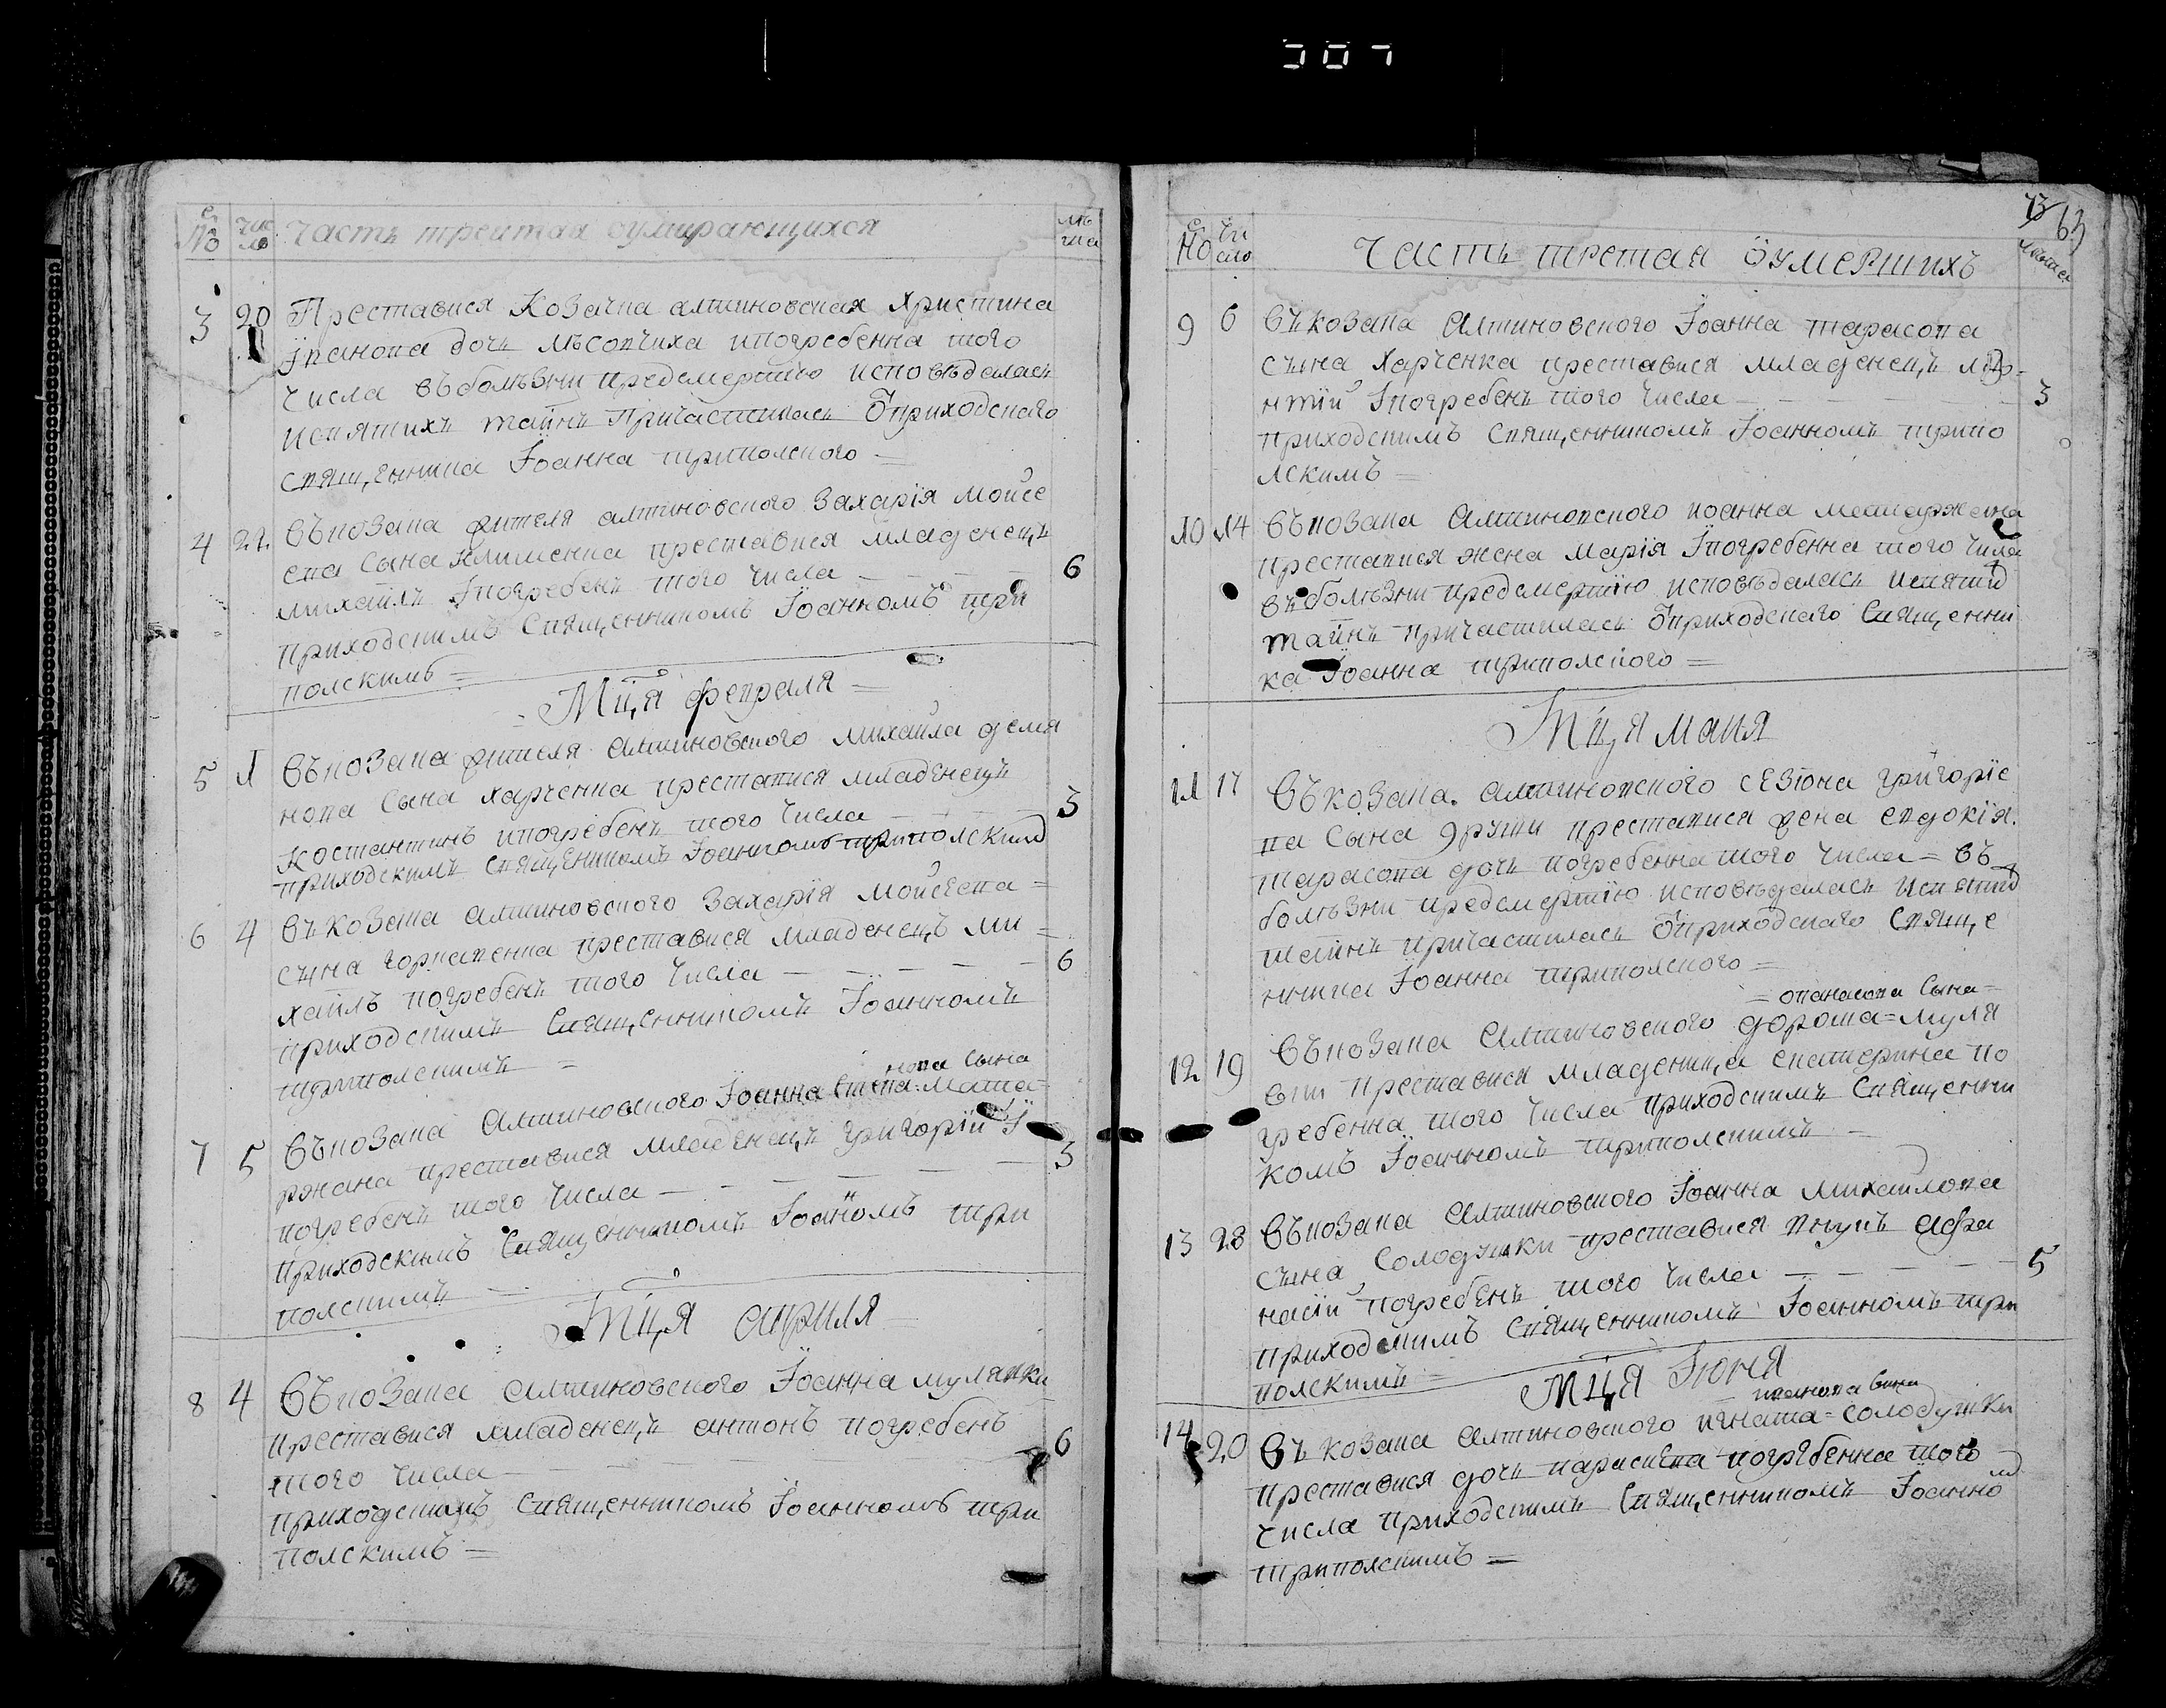 307
Часть третая оумирающихся
3 20 Преставися Козачка алтиновская Христина
Іванова дочь Мѣсопчиха ипогребенна того
числа въболѣзни предсмертію исповѣдалась
исвятихъ таинъ Причастилась Ѿприходского
священника Іоанна триполского =
4 22 Въковака жителя алтиновского Захарія Мойсе
ева сына Клименка преставися младенецъ
михаилъ Іпогребенъ того числа 6
приходскимъ Священникомъ Іоанномъ три
полскимъ =
Мця февраля =
5 1 Въкозака жителя Алтиновского михайла демя
нова Сына харченка преставися младенецъ
Костантинъ ипогребенъ того числа 3
приходскимъ Священникомъ Іоанномъ триполским
6 4 Въкозака алтиновского Захарія Мойсеева =
сына горкавенка преставися младенецъ ми =
хаилъ погребенъ того числа 6
приходскимъ Священникомъ Іоанномъ
триполскимъ =
нова сына
7 5 Въкозака Алтиновского Іоанна Маша=
ржана преставися младенецъ григорій І
погребенъ того числа 3
приходскимъ Священникомъ Іоанномъ три
полскимъ
Мця априля
8 4 Въкозака Алтиновского Іоанна мулявки
преставися младенецъ антонъ погребенъ
того числа 6
приходскимъ Священникомъ Іоанномъ три
полскимъ =
63
Часть третая Ѿумершихъ
9 6 Въкозака Алтиновского Іоанна тарасова
сына Харченка преставися младенецъ
нтій Іпогребенъ того числа 3
приходскимъ Священникомъ Іоанномъ трипо
лскимъ =
10 14 Въкозака Алтиновского иоанна машаржана
преставися жена Марія Іпогребенна того числа
въболѣзни предсмертію исповѣдалась исвятих
таинъ причастилась Ѿприходского Священни
ка Іоанна триполского =
Мця маия
11 17 Въкозака Алтиновского григоріе
ва Сына преставися жена евдокія
тарасова дочь погребенна того числа = въ
болѣзни предсмертію исповѣдалась исвятих
таинъ причастилась Ѿприходского Свяще
нника Іоанна триполского =
= опанасова Сына =
12 19 Въкозака Алтиновского дороша = муля
вки преставися младеница екатерина по
гребенна того числа приходскимъ Священни
комъ Іоанномъ триполскимъ
13 28 Въкозака Алтиновского Іоанна михайлова
сына Солодушки преставися внукъ афа
насій погребенъ того числа 5
приходскимъ Священникомъ Іоанномъ три
полскимъ =
Мця Іюня
иванова Сина
14 20 Въ козака Алтиновского игната = солодушки
преставися дочь параскева погребенна того
числа приходскимъ Священникомъ Іоанном
триполскимъ =